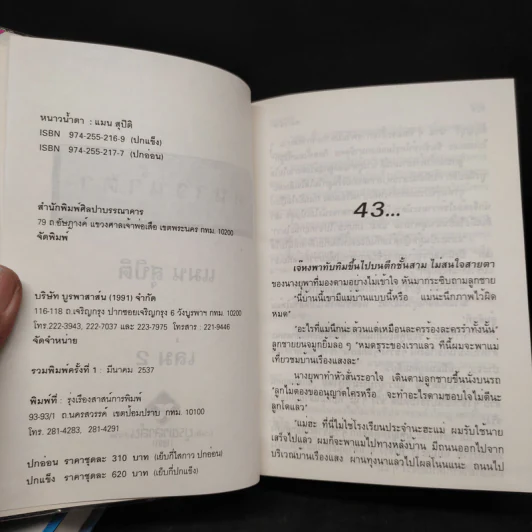 หนาวน้ำตา : แมน สุปิติ
ISBN 974-255-216-9 (ปกแข็ง)
ISBN 974-255-217-7 (ปกอ่อน)
สำนักพิมพ์ศิลปาบรรณาคาร
79 ถ.อัษฎางค์ แขวงศาลเจ้าพ่อเสือ เขตพระนคร กทม. 10200
จัดพิมพ์
บริษัท บูรพาสาส์น (1991) จำกัด
116-118 ถ.เจริญกรุง ปากซอยเจริญกรุง 6 วังบูรพาฯ กทม.
โทร.222-3943, 222-7037 และ 223-7975 โทรสาร : 221-9446
จัดจำหน่าย
รวมพิมพ์ครั้งที่ 1 : มีนาคม 2537
พิมพ์ที่ : รุ่งเรืองสาส์นการพิมพ์
93-93/1 ถ.นครสวรรค์ เขตป้อมปราบ กทม. 10100
โทร. 281-4283, 281-4291
ปกอ่อน ราคาชุดละ 310 บาท (เย็บกี่ไสกาว ปกอ่อน)
ปกแข็ง ราคาชุดละ 620 บาท (เย็บกี่ปกแข็ง)
43...
เจ๊หงพาทับทิมขึ้นไปบนตึกชั้นสาม ไม่สนใจสายตา
ของนางยุพาที่มองตามอย่างไม่เข้าใจ หันมากระซิบถามลูกชาย
"นี่บ้านนี้เขามีแม่บ้านแบบนี้หรือ แม่นะนึกภาพไว้ผิด
หมด"
"อะไรที่แม่นึกนะล้วนแต่เหมือนละครร้องละครรำทั้งนั้น"
ลูกชายยนจมูกยิ้มล้อ ๆ "หมดธุระของเราแล้ว ทีนี้ผมจะพาแม่
เที่ยวชมบ้านเรืองแสงละ"
นางยุพาทำหัวสั่นระอาใจ เดินตามลูกชายขึ้นนั่งบนรถ
"ลูกไม่ต้องขออนุญาตใครหรือ จะทำอะไรตามชอบใจไม่ดีนะ
ลูกโตแล้ว"
"แม่ฮะ ที่นี่ไม่ใช่โรงเรียนประจำนะฮะแม่ ผมรับใช้นาย
เสร็จไปแล้ว ผมก็จะพาแม่ไปทางหลังบ้าน มีถนนออกไปจาก
บริเวณบ้านเรืองแสง ผ่านทุ่งนาแล้วไปโผล่โน่นแน่ะ ถนนไป